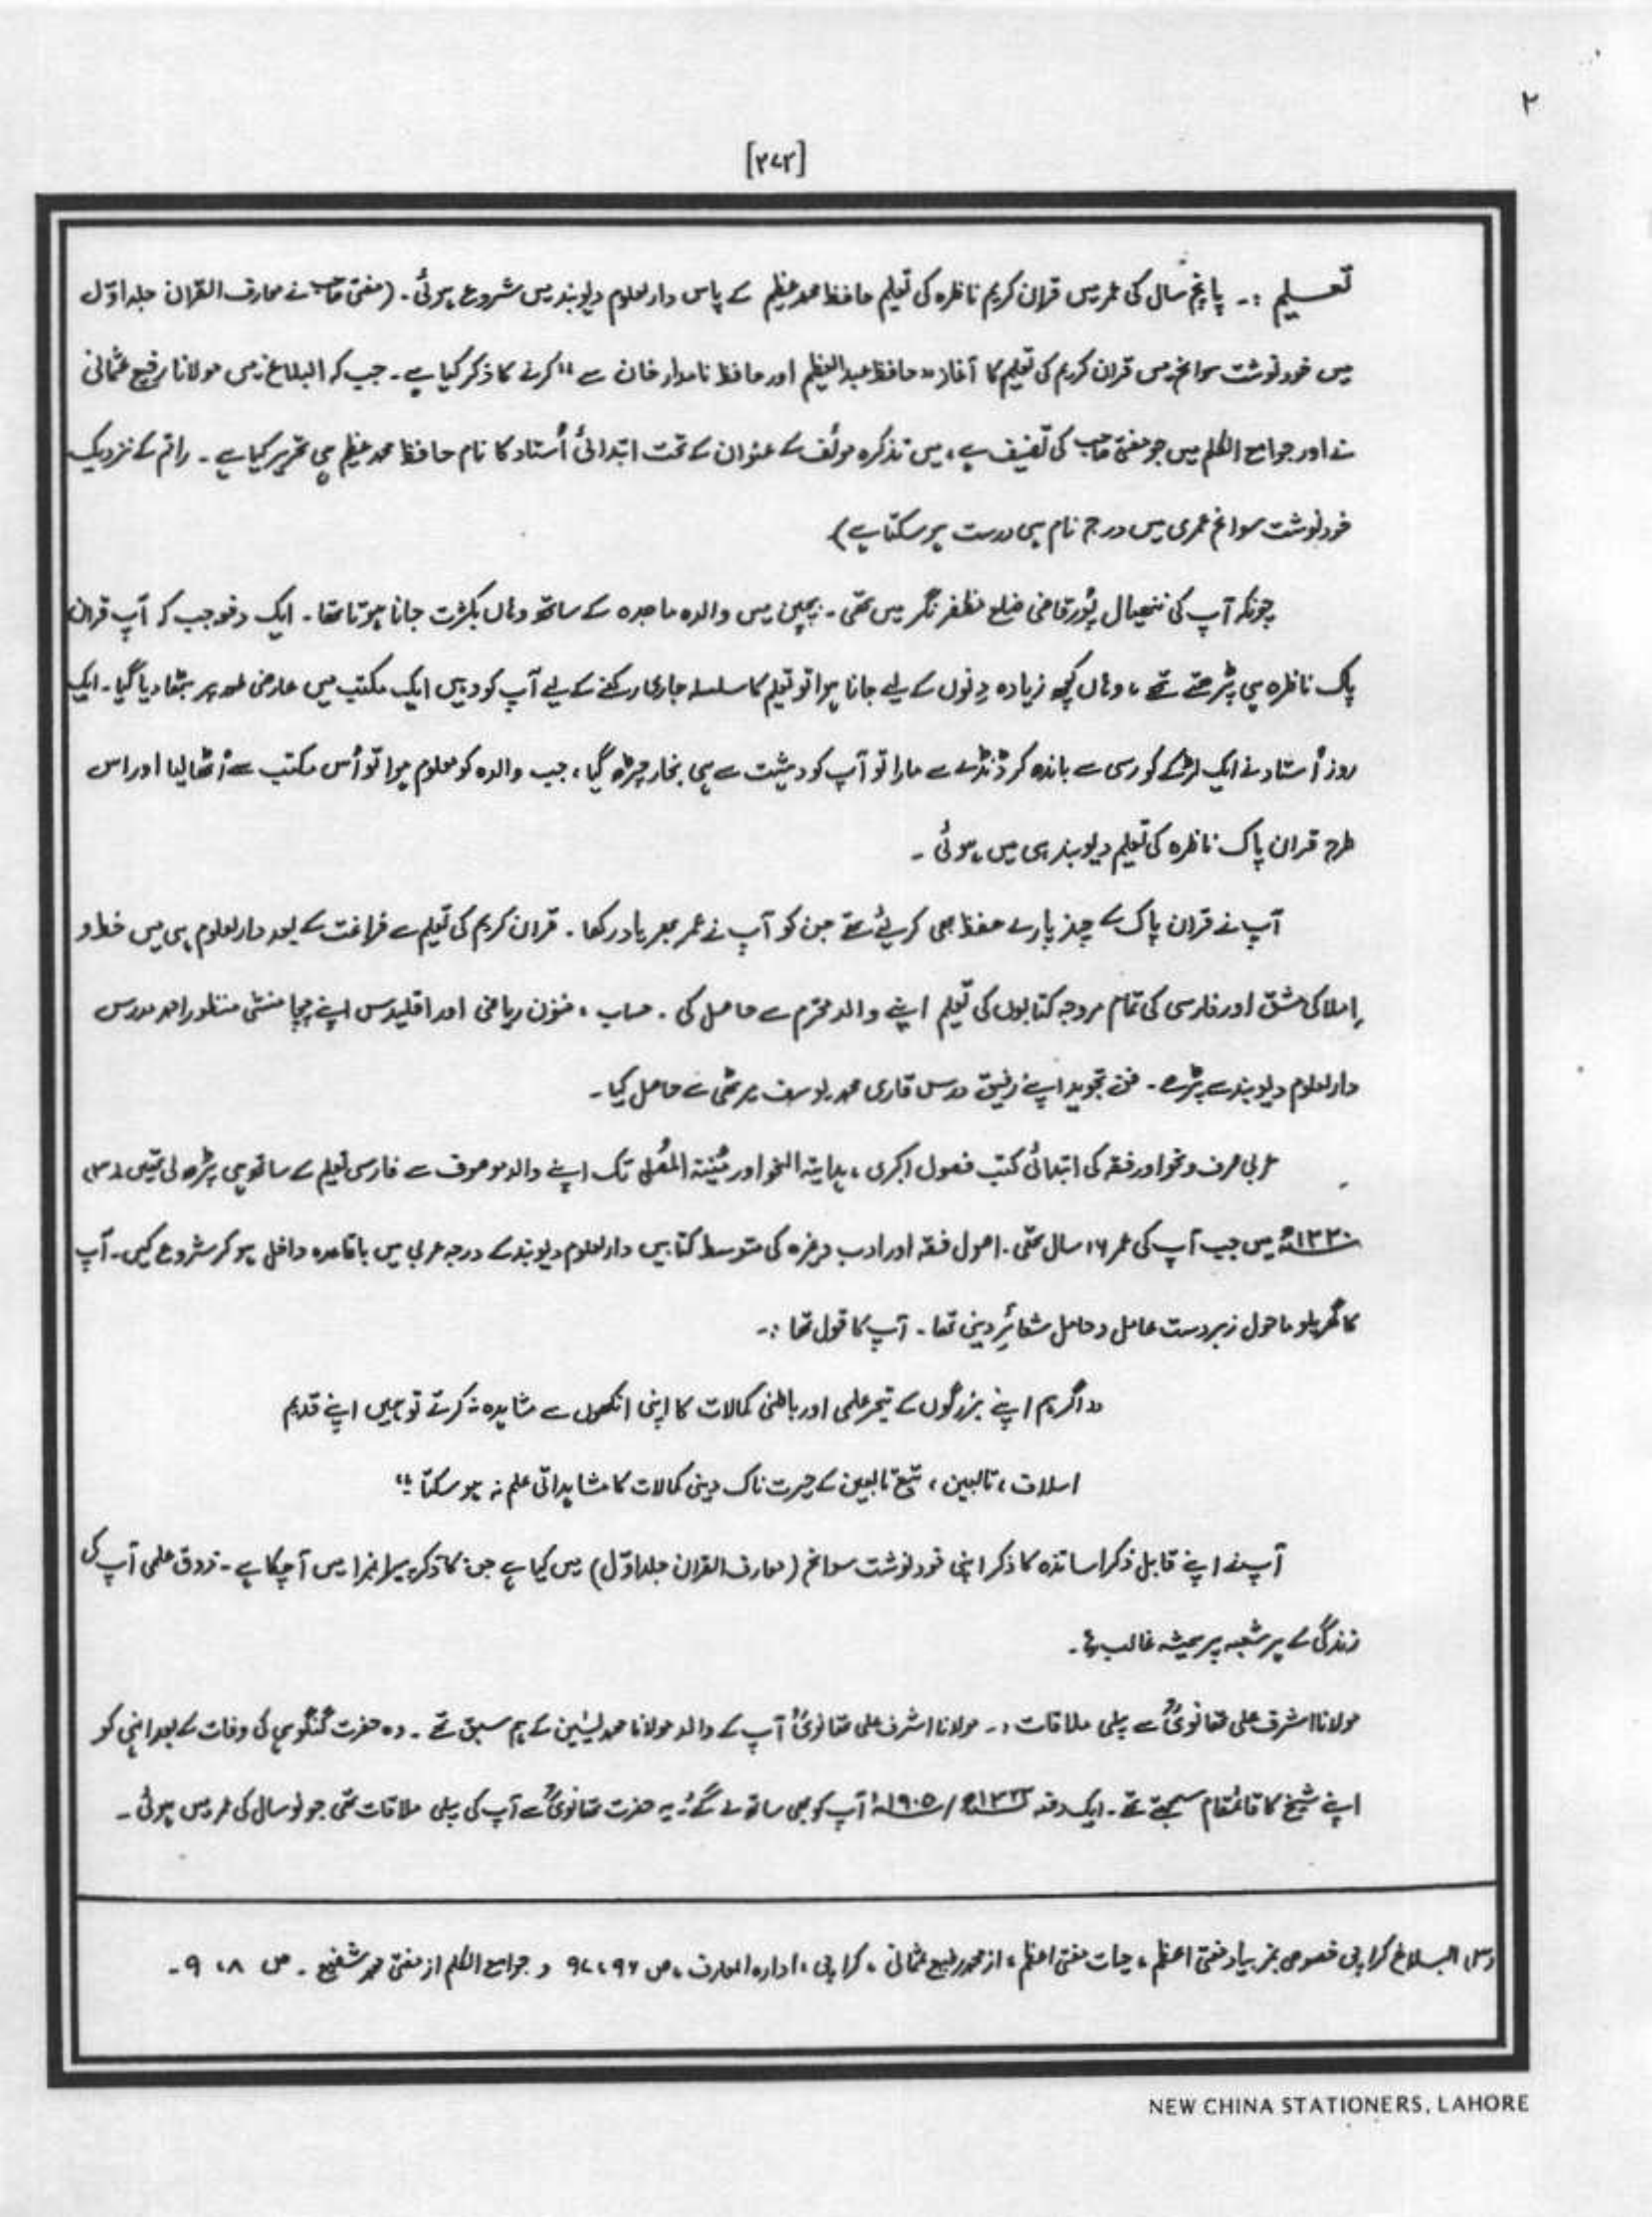 ۲
[۲۷۲]
تعلیم :۔ پانچ سال کی عمر میں قرآن کریم ناظرہ کی تعلیم حافظ محمد عظیم کے پاس دارالعلوم دیوبند میں شروع ہوئی۔ (مفتی صاحب نے معارف القرآن جلد اوّل
میں خود نوشت سوانح میں قرآن کریم کی تعلیم کا آغاز "حافظ عبدالعظیم اور حافظ نامدار خان سے" کرنے کا ذکر کیا ہے۔ جب کہ البلاغ میں مولانا رفیع عثمانی
نے اور جوامع الکلم میں جو مفتی صاحب کی تصنیف ہے، میں تذکرہ مولف کے عنوان کے تحت ابتدائی اُستاد کا نام حافظ محمد عظیم ہی تحریر کیا ہے۔ راقم کے نزدیک
خود نوشت سوانح عمری میں درج نام ہی درست ہو سکتا ہے)
چونکہ آپ کی ننھیال پُور قاضی ضلع مظفر نگر میں تھی۔ بچپن میں والدہ ماجدہ کے ساتھ وہاں بکثرت جانا ہوتا تھا۔ ایک دفعہ جب کہ آپ قرآن
پاک ناظرہ ہی پڑھتے تھے، وہاں کچھ زیادہ دِنوں کے لیے جانا ہوا تو تعلیم کا سلسلہ جاری رکھنے کے لیے آپ کو وہیں ایک مکتب میں عارضی طور پر بٹھا دیا گیا۔ ایک
روز اُستاد نے ایک لڑکے کو رسی سے باندھ کر ڈنڈے سے مارا تو آپ کو دہشت سے ہی بخار چڑھ گیا، جب والدہ کو معلوم ہوا تو اُس مکتب سے اُٹھا لیا اور اس
طرح قرآن پاک ناظرہ کی تعلیم دیوبند ہی میں ہوئی۔
آپ نے قرآن پاک کے چند پارے حفظ بھی کر لیے تھے جن کو آپ نے عمر بھر یاد رکھا۔ قرآن کریم کی تعلیم سے فراغت کے بعد دارالعلوم ہی میں خط و
اِملا کی مشق اور فارسی کی تمام مروجہ کتابوں کی تعلیم اپنے والد محترم سے حاصل کی۔ حساب، فنون ریاضی اور اقلیدس اپنے چچا منشی منظور احمد مدرس
دارالعلوم دیوبند سے پڑھے۔ فن تجوید اپنے رفیق درس قاری محمد یوسف میرٹھی سے حاصل کیا۔
عربی صرف و نحو اور فقہ کی ابتدائی کتب فصول اکبری، ہدایۃ النحو اور مُنیۃ المُصلی تک اپنے والد موصوف سے فارسی تعلیم کے ساتھ ہی پڑھ لی تھیں (۳)
۱۳۳۰ھ میں جب آپ کی عمر ۱۶ سال تھی۔ اصول فقہ اور ادب وغیرہ کی متوسط کتابیں دارالعلوم دیوبند کے درجہ عربی میں باقاعدہ داخل ہو کر شروع کیں۔ آپ
کا گھریلو ماحول زبردست عامل و حامل شعائرِ دینی تھا۔ آپ کا قول تھا :۔
"اگر ہم اپنے بزرگوں کے تبحر علمی اور باطنی کمالات کا اپنی انکھوں سے مشاہدہ نہ کرتے تو ہمیں اپنے قدیم
اسلاف، تابعین، تبع تابعین کے حیرت ناک دینی کمالات کا مشاہداتی علم نہ ہو سکتا۔"
آپ نے اپنے قابل ذکر اساتذہ کا ذکر اپنی خود نوشت سوانح (معارف القرآن جلد اوّل) میں کیا ہے جن کا ذکر پیرا نمبر ا میں آچکا ہے۔ ذوق علمی آپ کی
زندگی کے ہر شعبہ پر ہمیشہ غالب رہا۔
مولانا اشرف علی تھانویؒ سے پہلی ملاقات :۔ مولانا اشرف علی تھانویؒ آپ کے والد مولانا محمد یٰسین کے ہم سبق تھے۔ وہ حضرت گنگوہی کی وفات کے بعد انہی کو
اپنے شیخ کا قائمقام سمجھتے تھے۔ ایک دفعہ /۱۹۰۵ء آپ کو بھی ساتھ لے گئے۔ یہ حضرت تھانویؒ سے آپ کی پہلی ملاقات تھی جو نو سال کی عمر میں ہوئی۔
(۳) البلاغ کراچی خصوصی نمبر بیاد مفتی اعظم، حیات مفتی اعظم، از محمد رفیع عثمانی، کراچی، ادارہ المعارف، ص ۹۶، ۹۷ و جوامع الکلم از مفتی محمد شفیع۔ ص ۸، ۹۔
NEW CHINA STATIONERS, LAHORE